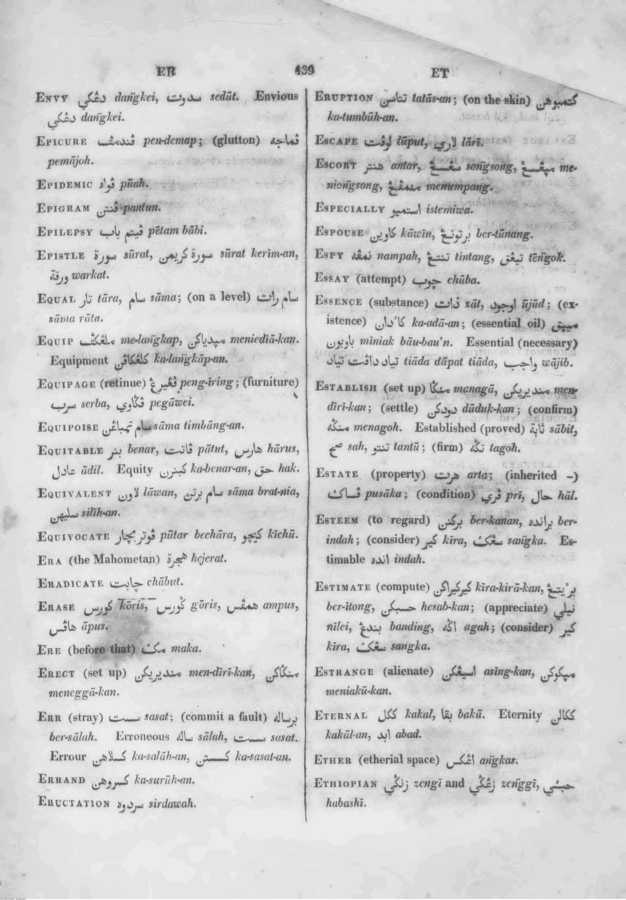 ER 439 ET
ENVY دڠكي dangkei, سدوت sedût. Envious
دڠكي dangkei.
EPICURE pen-demap; (glutton) قماجه
pemâjoh.
EPIDEMIC pûah.
EPIGRAM قنتن pantun.
EPILEPSY ڤيتم بابي pītam bâbi.
EPISTLE سورة sûrat, سورة كريمن sûrat kerim-an,
ورقة warkat.
EQUAL تار târa, سام sâma; (on a level) سام رات
sâma râta.
EQUIP me-langkap, meniediâ-kan.
Equipment ka-langkâp-an.
EQUIPAGE (retinue) peng-iring; (furniture)
سرب serba, pegâwei.
EQUIPOISE sâma timbâng-an.
EQUITABLE بنر benar, ڤاتت pâtut, هارس hârus,
عادل âdil. Equity ka-benar-an, حق hak.
EQUIVALENT لاون lâwan, سام برتن sâma brat-nia,
سليهن silîh-an.
EQUIVOCATE ڤوتر بچار pûtar bechâra, كيچو kîchû.
ERA (the Mahometan) هجرة hejerat.
ERADICATE چابت châbut.
ERASE كورس kōris, گورس gōris, همڤس ampus,
هاڤس âpus.
ERE (before that) مك maka.
ERECT (set up) منديريكن men-dîrī-kan,
meneggâ-kan.
ERR (stray) سست sasat; (commit a fault) برساله
ber-sâlah. Erroneous ساله sâlah, سست sasat.
Errour ka-salâh-an, كسستن ka-sasat-an.
ERRAND كسروهن ka-surûh-an.
ERUCTATION سرداوه sirdawah.
ERUPTION تتاسن tatâs-an; (on the skin) كتمبوهن
ka-tumbûh-an.
ESCAPE لوڤت lûput, لاري lârī.
ESCORT هنتر antar, سڠسڠ songsong, me-
niongsong, menumpang.
ESPECIALLY استميو istemiwa.
ESPOUSE كاوين kâwīn, برتونڠ ber-tûnang.
ESPY نمڤه nampah, تنتڠ tintang, تيڠق tēngok.
ESSAY (attempt) چوب chûba.
ESSENCE (substance) ذات zât, وجود ûjûd; (ex-
istence) ka-adâ-an; (essential oil) ميڽق
باوبون miniak bâu-bau'n. Essential (necessary)
تياد داڤت تياد tiâda dâpat tiâda, واجب wâjib.
ESTABLISH (set up) menagâ, منديريكن men-
dīrī-kan; (settle) dâduk-kan; (confirm)
menagoh. Established (proved) ثابة sâbit,
صح sah, تنتو tantû; (firm) تگه tagoh.
ESTATE (property) هرت arta; (inherited -)
ڤساك pusâka; (condition) ڤري prī, حال hâl.
ESTEEM (to regard) بركنن ber-kanan, براند ber-
indah; (consider) كير kira, سڠك sangka. Es-
timable اند indah.
ESTIMATE (compute) كيركيراكن kîra-kirâ-kan, برئيتڠ
ber-itong, حسبكن hesab-kan; (appreciate) نيلي
nilei, بندڠ banding, اگه agah; (consider) كير
kira, سڠك sangka.
ESTRANGE (alienate) اسيڠكن asing-kan,
meniakû-kan.
ETERNAL ككل kakal, بقا bakâ. Eternity ككالن
kakâl-an, ابد abad.
ETHER (etherial space) اڠكس angkas.
ETHIOPIAN زنڬي zengi and زڠڬي zenggi, حبشي
habashī.